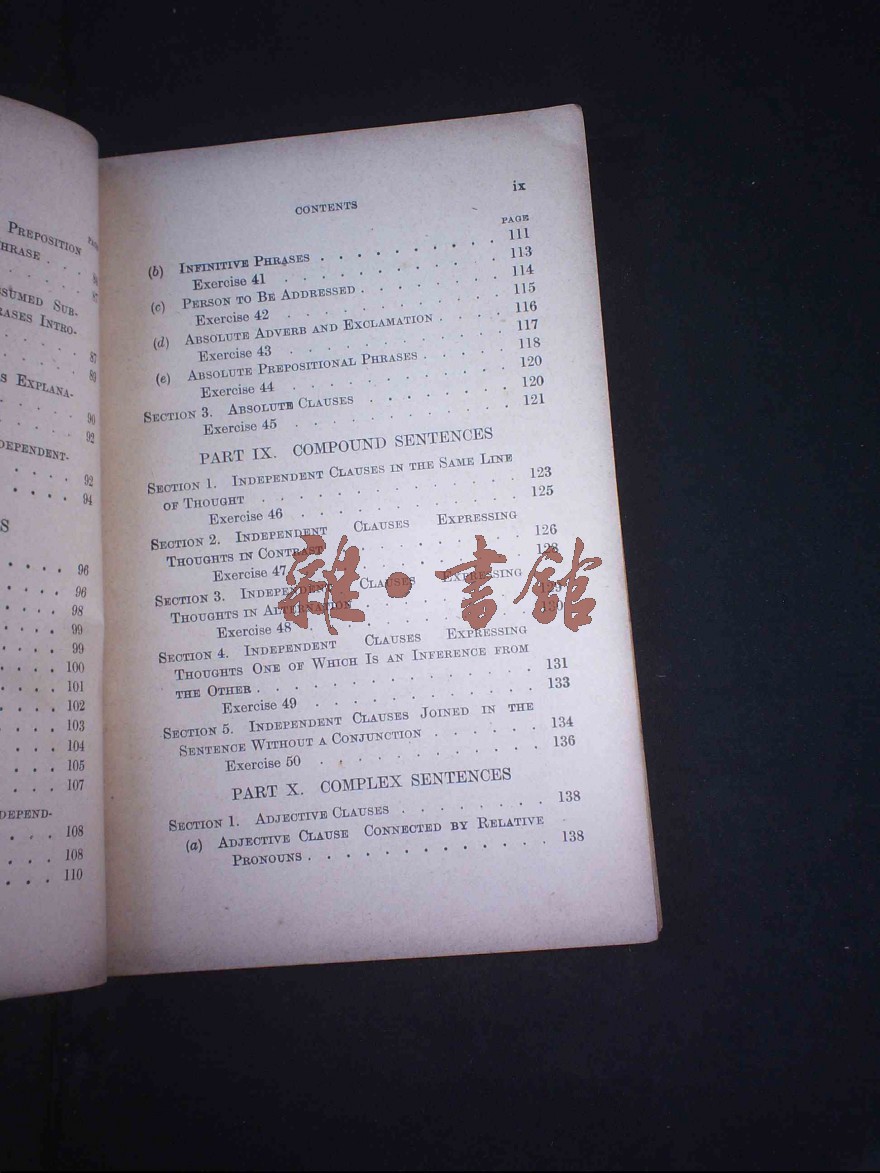 PREPOSITION
PHRASE
86
87
ASSUMED SUB-
PHRASES INTRO-
87
89
EXPLANA-
90
92
INDEPENDENT-
92
94
S
96
96
98
99
99
100
101
102
103
104
105
107
INDEPEND-
108
108
110
CONTENTS ix
PAGE
(b) INFINITIVE PHRASES . . . . . . . . . . 111
Exercise 41 . . . . . . . . . . 113
(c) PERSON TO BE ADDRESSED . . . . . . . . 114
Exercise 42 . . . . . . . . . . 115
(d) ABSOLUTE ADVERB AND EXCLAMATION . . . . 116
Exercise 43 . . . . . . . . . . 117
(e) ABSOLUTE PREPOSITIONAL PHRASES . . . . . 118
Exercise 44 . . . . . . . . . . 120
SECTION 3. ABSOLUTE CLAUSES . . . . . . . . 120
Exercise 45 . . . . . . . . . . 121
PART IX. COMPOUND SENTENCES
SECTION 1. INDEPENDENT CLAUSES IN THE SAME LINE
OF THOUGHT . . . . . . . . . . . 123
Exercise 46 . . . . . . . . . . 125
SECTION 2. INDEPENDENT CLAUSES EXPRESSING
THOUGHTS IN CONTRAST . . . . . . . . 126
Exercise 47 . . . . . . . . . . 128
SECTION 3. INDEPENDENT CLAUSES EXPRESSING
THOUGHTS IN ALTERNATION . . . . . . . 129
Exercise 48 . . . . . . . . . . 130
SECTION 4. INDEPENDENT CLAUSES EXPRESSING
THOUGHTS ONE OF WHICH IS AN INFERENCE FROM
THE OTHER . . . . . . . . . . . . 131
Exercise 49 . . . . . . . . . . 133
SECTION 5. INDEPENDENT CLAUSES JOINED IN THE
SENTENCE WITHOUT A CONJUNCTION . . . . . . 134
Exercise 50 . . . . . . . . . . 136
PART X. COMPLEX SENTENCES
SECTION 1. ADJECTIVE CLAUSES . . . . . . . . 138
(a) ADJECTIVE CLAUSE CONNECTED BY RELATIVE
PRONOUNS . . . . . . . . . . . . 138
雜·書館